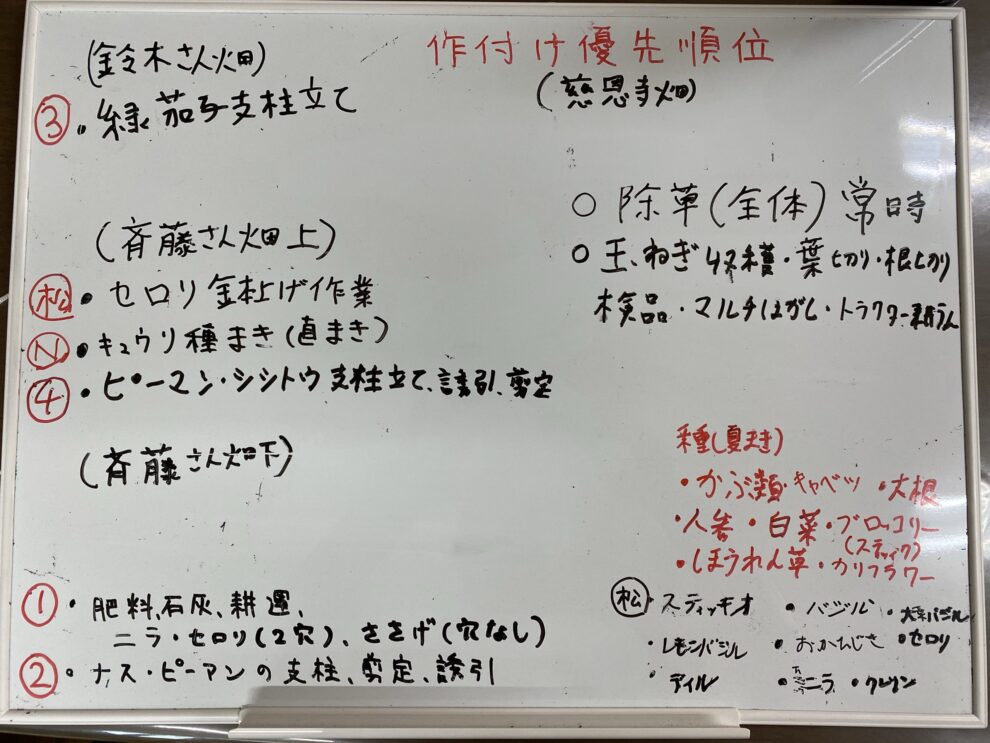 作付け優先順位
(鈴木さん畑)
③・緑茄子支柱立て
(斉藤さん畑上)
松・セロリ金上げ作業
N・キュウリ種まき(直まき)
④・ピーマン・シシトウ支柱立て、誘引、剪定
(斉藤さん畑下)
①・肥料、石灰、耕運、
ニラ・セロリ(2穴)、ささげ(穴なし)
②・ナス・ピーアンの支柱、剪定、誘引
(慈恩寺畑)
○ 除草(全体)常時
○ 玉ねぎ収穫・葉切り・根切り
検品・マルチはがし・トラクター耕うん
種(夏まき)
・かぶ類・キャベツ ・大根
・人参 ・白菜・ブロッコリー
(スティック)
・ほうれん草・カリフラワー
松・スティッチオ ・バジル ・大葉バジル
・レモンバジル ・おかひじき ・セロリ
・ディル ・ニラ ・クレソン